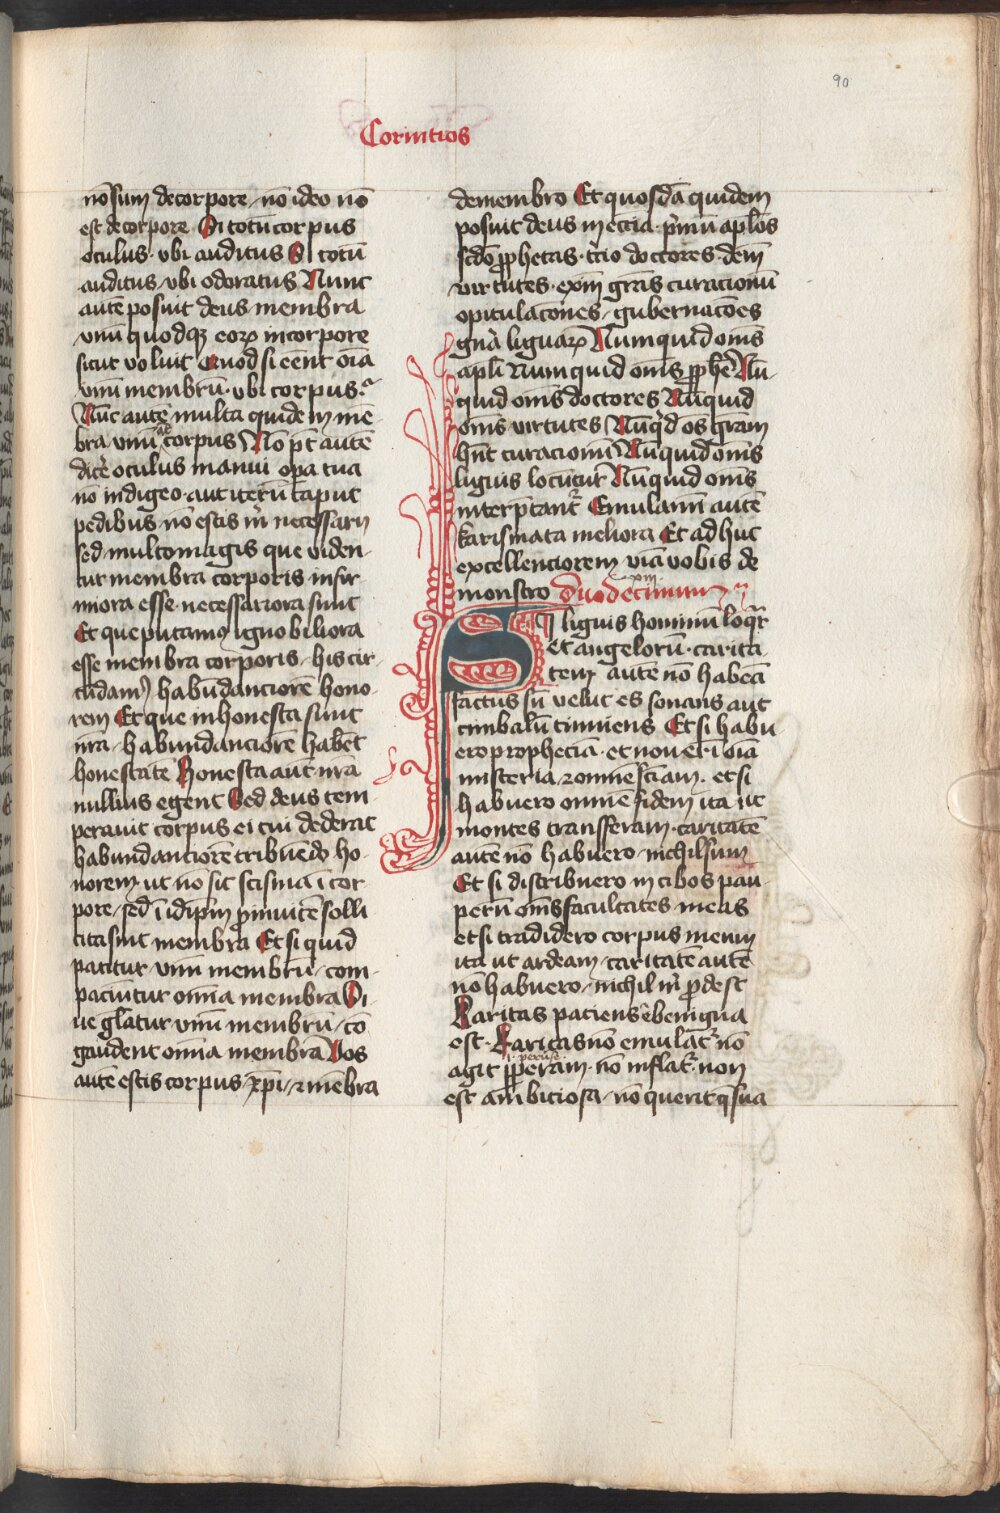 90
Corintios
nō sum de corpore / nō ideo nō
est de corpore Si totū corpus
oculus · vbi auditus Si totū
auditus / vbi odoratus Nunc
autē posuit deus membra
vnū quodqꝫ eoꝝ in corpore
sicut voluit Quod si eēnt oīa
vnū membrū · vbi corpus
Nūc autē multa quidem mē
bra vnū at̄ corpus No pt̄ autē
dicē oculus manui opa tua
nō indigeo · aut iterū caput
pedibus nō estis m̄ necessarij
sed multo magis que viden
tur membra corporis infir
miora esse necessariora sunt
Et que putamꝰ ignobiliora
esse membra corporis / his cir
cūdamꝰ habūdanciorē hono
rem Et que in honesta sunt
nr̄a / habundanciorē habēt
honestatē Honesta aūt nr̄a
nullius egent Sed deus tem
perauit corpus ei cui deerat
habundanciorē tribuēdo ho
norem / ut nō sit scisma ī cor
pore / sed ī idip̄m p̱ inuicē solli
cita sint membra Et si quid
patitur vnū membrū / com
paciūtur omīa membra Si
ue gl̄atur vnū membrū / cō
gaudent omīa membra Vos
autē estis corpus xp̄i / ⁊ mēbra
de membro Et quosdā quidem
posuit deus in ecc̄ia · p̄mū apl̄os
sc̄do ꝓphetas · t̄cio doctores · dem̄
virtutes · exīn gr̄as curacionū
opitulacōnes / gubernacōes
gn̄a liguaꝝ Numquid om̄s
apl̄i Numquid om̄s ꝓphē Nū
quid om̄s doctores Nūquid
om̄s virtutes Nūq̄d os gr̄am
hn̄t curacionū Nūquid om̄s
liguis locūtur Nūquid om̄s
interp̄tant᷑ Emulamī autē
karismata meliora Et ad huc
excellenciorem viā vobis de
monstro duodecimum
xiii
Si liguis hominū loq̄r
et angelorū · carita
tem autē nō habeā
factus sū velut es sonans aut
cimbalū tinniens Et si habu
ero propheciā · et nouerī oīa
misteria ⁊ omnē sc̄iam · et si
habuero omnē fidem ita ut
montes transfferam · caritatē
autē nō habuero / nichil sum
Et si distribuero in cibos pau
perū om̄s facultates meas
et si tradidero corpus meum
ita ut ardeam / caritatē autē
nō habuero / nichil m̄ ꝓdest
Karitas paciens ē benigna
est · Karitas nō emulat᷑ nō
agit ꝑperam · nō inflat᷑ · non
est ambiciosa / nō querit q̄ sua